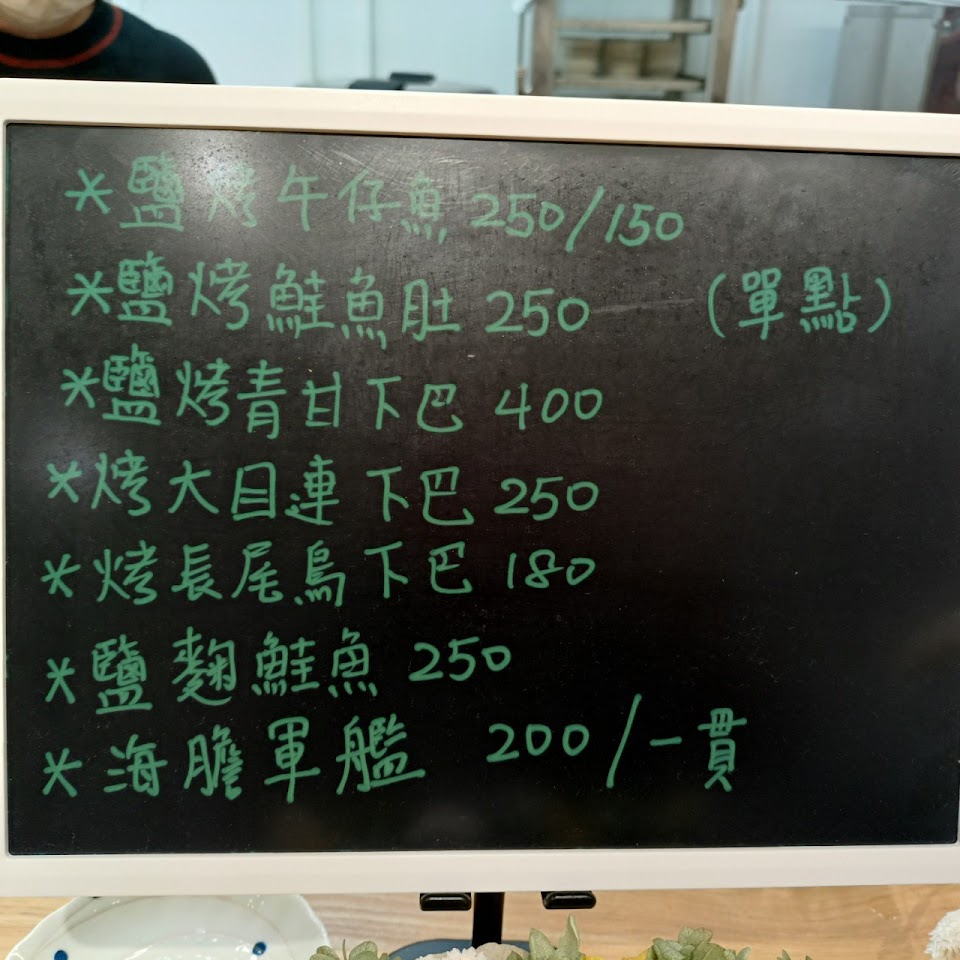 *鹽烤午仔魚 250/150
*鹽烤鮭魚肚 250 (單點)
*鹽烤青甘下巴 400
*烤大目連下巴 250
*烤長尾鳥下巴 180
*鹽麴鮭魚 250
*海膽軍艦 200/一貫